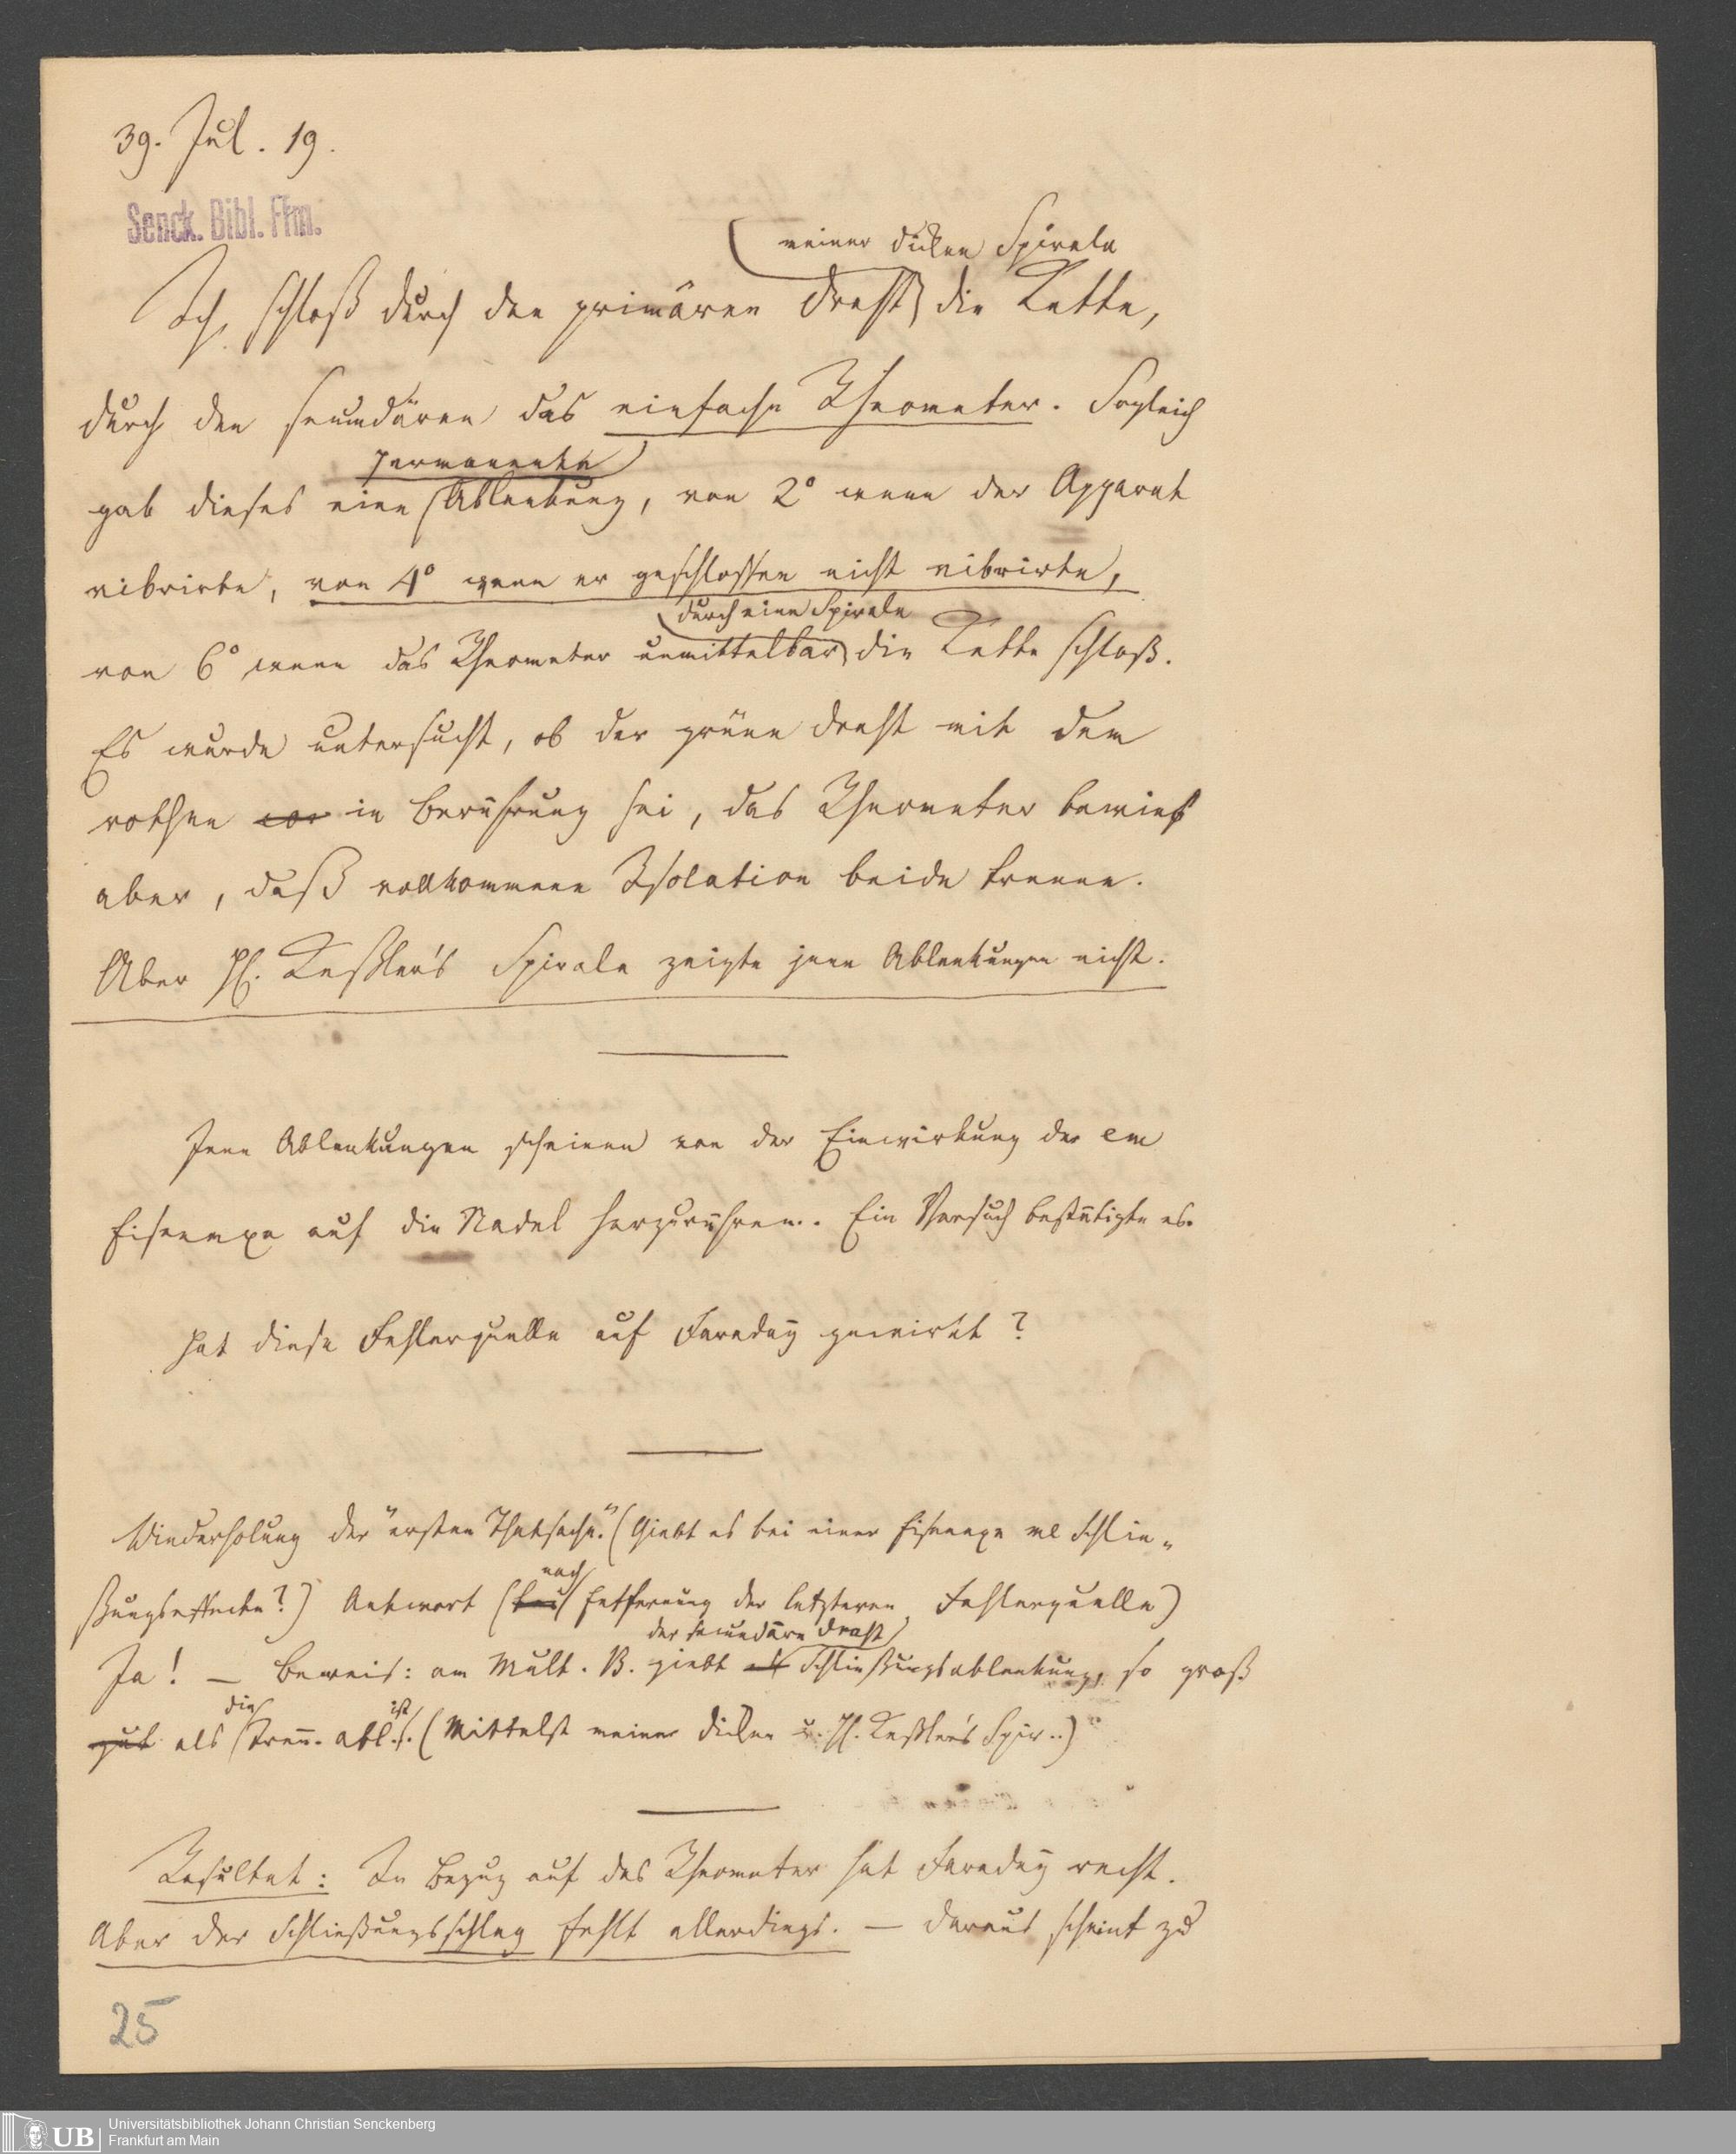 39. Jul. 19.
Senck. Bibl. Ffm.
meiner dicken Spirale
Ich schloß durch den primären Draht die Kette,
durch den secundären das einfache Rheometer. Sogleich
permanente
gab dieses eine Ablenkung, von 2° wenn der Apparat
vibrirte, von 4° wenn er geschlossen nicht vibrirte,
durch eine Spirale
von 6° wenn das Rheometer unmittelbar die Kette schloß.
Es wurde untersucht, ob der grüne Draht mit dem
rothen in Berührung sei, das Rheometer bewies
aber, daß vollkommene Isolation beide trenne.
Aber H. Keßler's Spirale zeigte jene Ablenkungen nicht.
Jene Ablenkungen scheinen von der Einwirkung der em
Eisenaxe auf die Nadel herzurühren. Ein Versuch bestätigte es.
Hat diese Fehlerquelle auf Faraday gewirkt?
Wiederholung der "ersten Thatsache". (Giebt es bei einer Eisenaxe Schlie-
nach
ßungseffecte?) Antwort (Entfernung der letzteren Fehlerquelle)
der secundäre Draht
Ja! — Beweis: am Mult. B. giebt Schließungsablenkung, so groß
die ist
gut als Trenn. abl. (Mittelst meiner dicken u. H. Keßler's Spir..)
Resultat: In Bezug auf das Rheometer hat Faraday recht.
Aber der Schließungsschlag fehlt allerdings. — Daraus scheint zu
25
UB Universitätsbibliothek Johann Christian Senckenberg
Frankfurt am Main